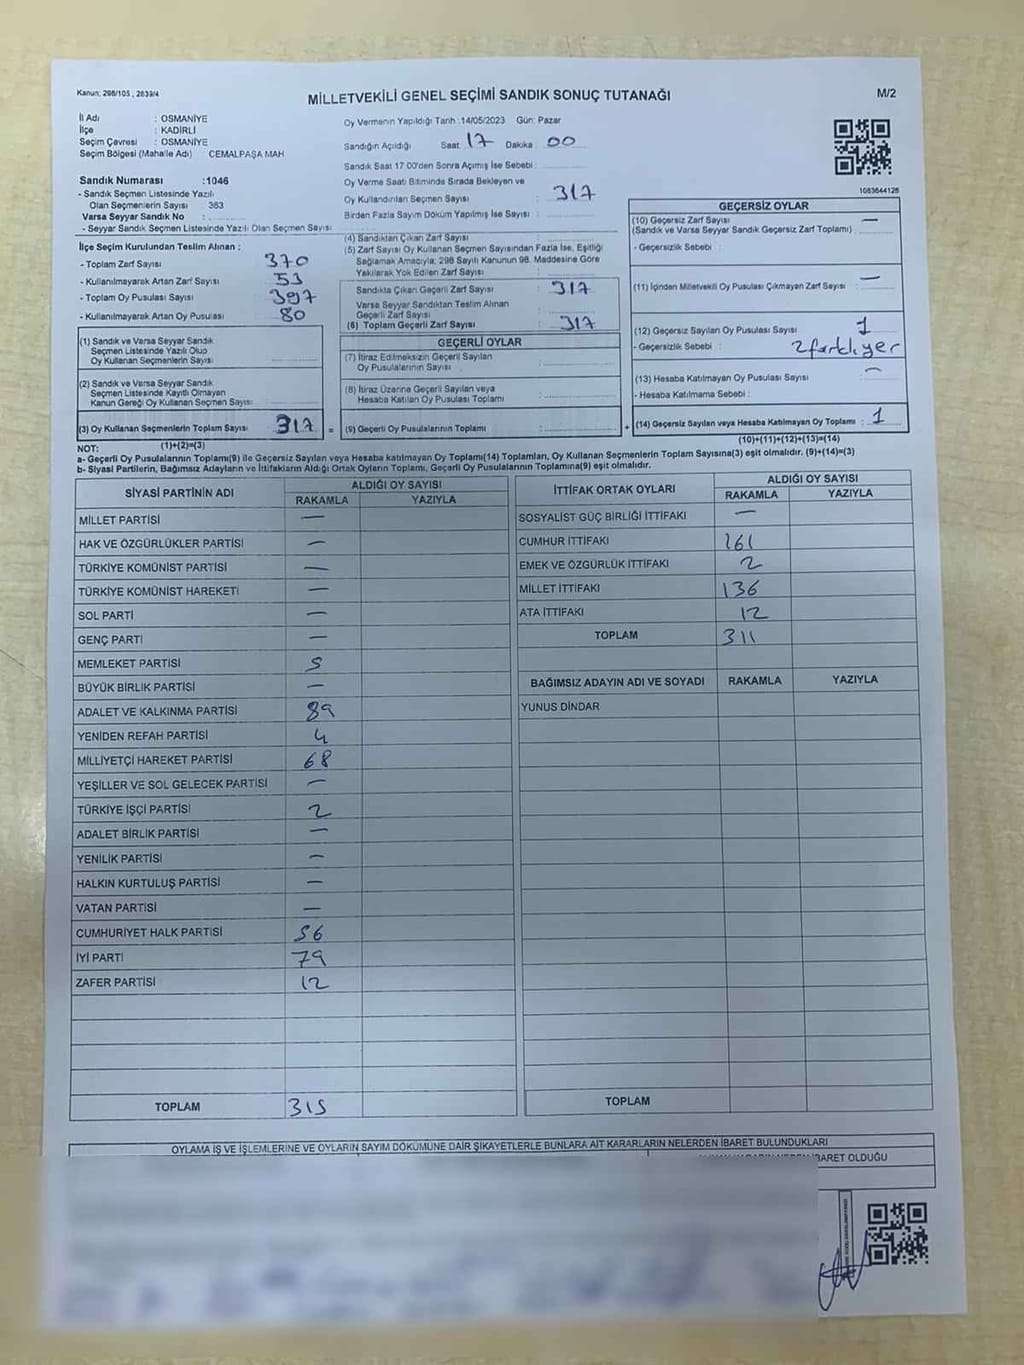 Kanun: 298/105 , 2839/4
MİLLETVEKİLİ GENEL SEÇİMİ SANDIK SONUÇ TUTANAĞI
M/2
İl Adı : OSMANİYE
İlçe : KADİRLİ
Seçim Çevresi : OSMANİYE
Seçim Bölgesi (Mahalle Adı) CEMALPAŞA MAH
Sandık Numarası :1046
- Sandık Seçmen Listesinde Yazılı
Olan Seçmenlerin Sayısı : 363
Varsa Seyyar Sandık No :
- Seyyar Sandık Seçmen Listesinde Yazılı Olan Seçmen Sayısı :
Oy Vermenin Yapıldığı Tarih :14/05/2023 Gün: Pazar
Sandığın Açıldığı Saat 17 Dakika 00
Sandık Saat 17 00'den Sonra Açılmış İse Sebebi :
Oy Verme Saati Bitiminde Sırada Bekleyen ve
Oy Kullandırılan Seçmen Sayısı : 317
Birden Fazla Sayım Döküm Yapılmış İse Sayısı :
1083644126
İlçe Seçim Kurulundan Teslim Alınan ;
- Toplam Zarf Sayısı 370
- Kullanılmayarak Artan Zarf Sayısı 53
- Toplam Oy Pusulası Sayısı 397
- Kullanılmayarak Artan Oy Pusulası 80
(1) Sandık ve Varsa Seyyar Sandık
Seçmen Listesinde Yazılı Olup
Oy Kullanan Seçmenlerin Sayısı :
(2) Sandık ve Varsa Seyyar Sandık
Seçmen Listesinde Kayıtlı Olmayan
Kanun Gereği Oy Kullanan Seçmen Sayısı :
(3) Oy Kullanan Seçmenlerin Toplam Sayısı 317 =
(1)+(2)=(3)
(4) Sandıktan Çıkan Zarf Sayısı :
(5) Zarf Sayısı Oy Kullanan Seçmen Sayısından Fazla İse, Eşitliği
Sağlamak Amacıyla; 298 Sayılı Kanunun 98. Maddesine Göre
Yakılarak Yok Edilen Zarf Sayısı :
Sandıkta Çıkan Geçerli Zarf Sayısı : 317
Varsa Seyyar Sandıktan Teslim Alınan
Geçerli Zarf Sayısı :
(6) Toplam Geçerli Zarf Sayısı : 317
GEÇERLİ OYLAR
(7) İtiraz Edilmeksizin Geçerli Sayılan
Oy Pusulalarının Sayısı :
(8) İtiraz Üzerine Geçerli Sayılan veya
Hesaba Katılan Oy Pusulası Toplamı :
(9) Geçerli Oy Pusulalarının Toplamı : +
GEÇERSİZ OYLAR
(10) Geçersiz Zarf Sayısı : —
(Sandık ve Varsa Seyyar Sandık Geçersiz Zarf Toplamı)
- Geçersizlik Sebebi :
(11) İçinden Milletvekili Oy Pusulası Çıkmayan Zarf Sayısı : —
(12) Geçersiz Sayılan Oy Pusulası Sayısı : 1
- Geçersizlik Sebebi : 2 farklı yer
(13) Hesaba Katılmayan Oy Pusulası Sayısı : —
- Hesaba Katılmama Sebebi :
(14) Geçersiz Sayılan veya Hesaba Katılmayan Oy Toplamı : 1
(10)+(11)+(12)+(13)=(14)
NOT:
a- Geçerli Oy Pusulalarının Toplamı(9) ile Geçersiz Sayılan veya Hesaba katılmayan Oy Toplamı(14) Toplamları, Oy Kullanan Seçmenlerin Toplam Sayısına(3) eşit olmalıdır. (9)+(14)=(3)
b- Siyasi Partilerin, Bağımsız Adayların ve İttifakların Aldığı Ortak Oyların Toplamı, Geçerli Oy Pusulalarının Toplamına(9) eşit olmalıdır.
SİYASİ PARTİNİN ADI ALDIĞI OY SAYISI
RAKAMLA YAZIYLA
MİLLET PARTİSİ —
HAK VE ÖZGÜRLÜKLER PARTİSİ —
TÜRKİYE KOMÜNİST PARTİSİ —
TÜRKİYE KOMÜNİST HAREKETİ —
SOL PARTİ —
GENÇ PARTİ —
MEMLEKET PARTİSİ 5
BÜYÜK BİRLİK PARTİSİ —
ADALET VE KALKINMA PARTİSİ 89
YENİDEN REFAH PARTİSİ 4
MİLLİYETÇİ HAREKET PARTİSİ 68
YEŞİLLER VE SOL GELECEK PARTİSİ —
TÜRKİYE İŞÇİ PARTİSİ 2
ADALET BİRLİK PARTİSİ —
YENİLİK PARTİSİ —
HALKIN KURTULUŞ PARTİSİ —
VATAN PARTİSİ —
CUMHURİYET HALK PARTİSİ 56
İYİ PARTİ 79
ZAFER PARTİSİ 12
TOPLAM 315
İTTİFAK ORTAK OYLARI ALDIĞI OY SAYISI
RAKAMLA YAZIYLA
SOSYALİST GÜÇ BİRLİĞİ İTTİFAKI —
CUMHUR İTTİFAKI 161
EMEK VE ÖZGÜRLÜK İTTİFAKI 2
MİLLET İTTİFAKI 136
ATA İTTİFAKI 12
TOPLAM 311
BAĞIMSIZ ADAYIN ADI VE SOYADI RAKAMLA YAZIYLA
YUNUS DİNDAR
TOPLAM
OYLAMA İŞ VE İŞLEMLERİNE VE OYLARIN SAYIM DÖKÜMÜNE DAİR ŞİKAYETLERLE BUNLARA AİT KARARLARIN NELERDEN İBARET BULUNDUKLARI
İBARET OLDUĞU